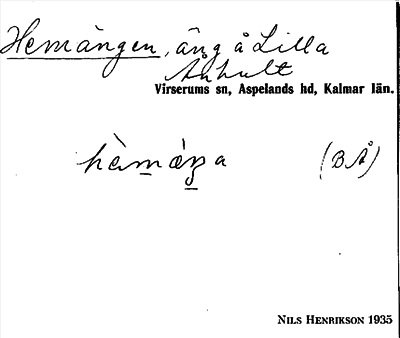 Hemängen, äng å Lilla
Århult
Virserums sn, Aspelands hd, Kalmar län.
hèmáŋa
(B Å)
NILS HENRIKSON 1935